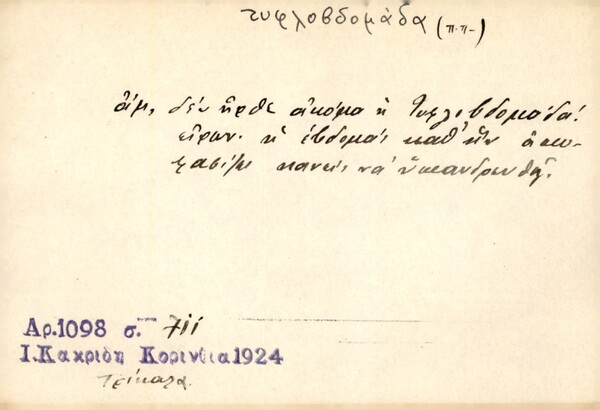 τυφλοβδομάδα (π.π-)
ἄμ, δὲν ἦρθε ἀκόμα ἡ Τυφλοβδομάδα!
εἴρων. ἡ ἑβδομὰς καθ' ἣν ἀπο-
φασίζει κανεὶς νὰ ὑπανδρευθῇ.
Αρ.1098 σ. 711
Ι.Κακριδη Κορινθια 1924
Τρίκαλα